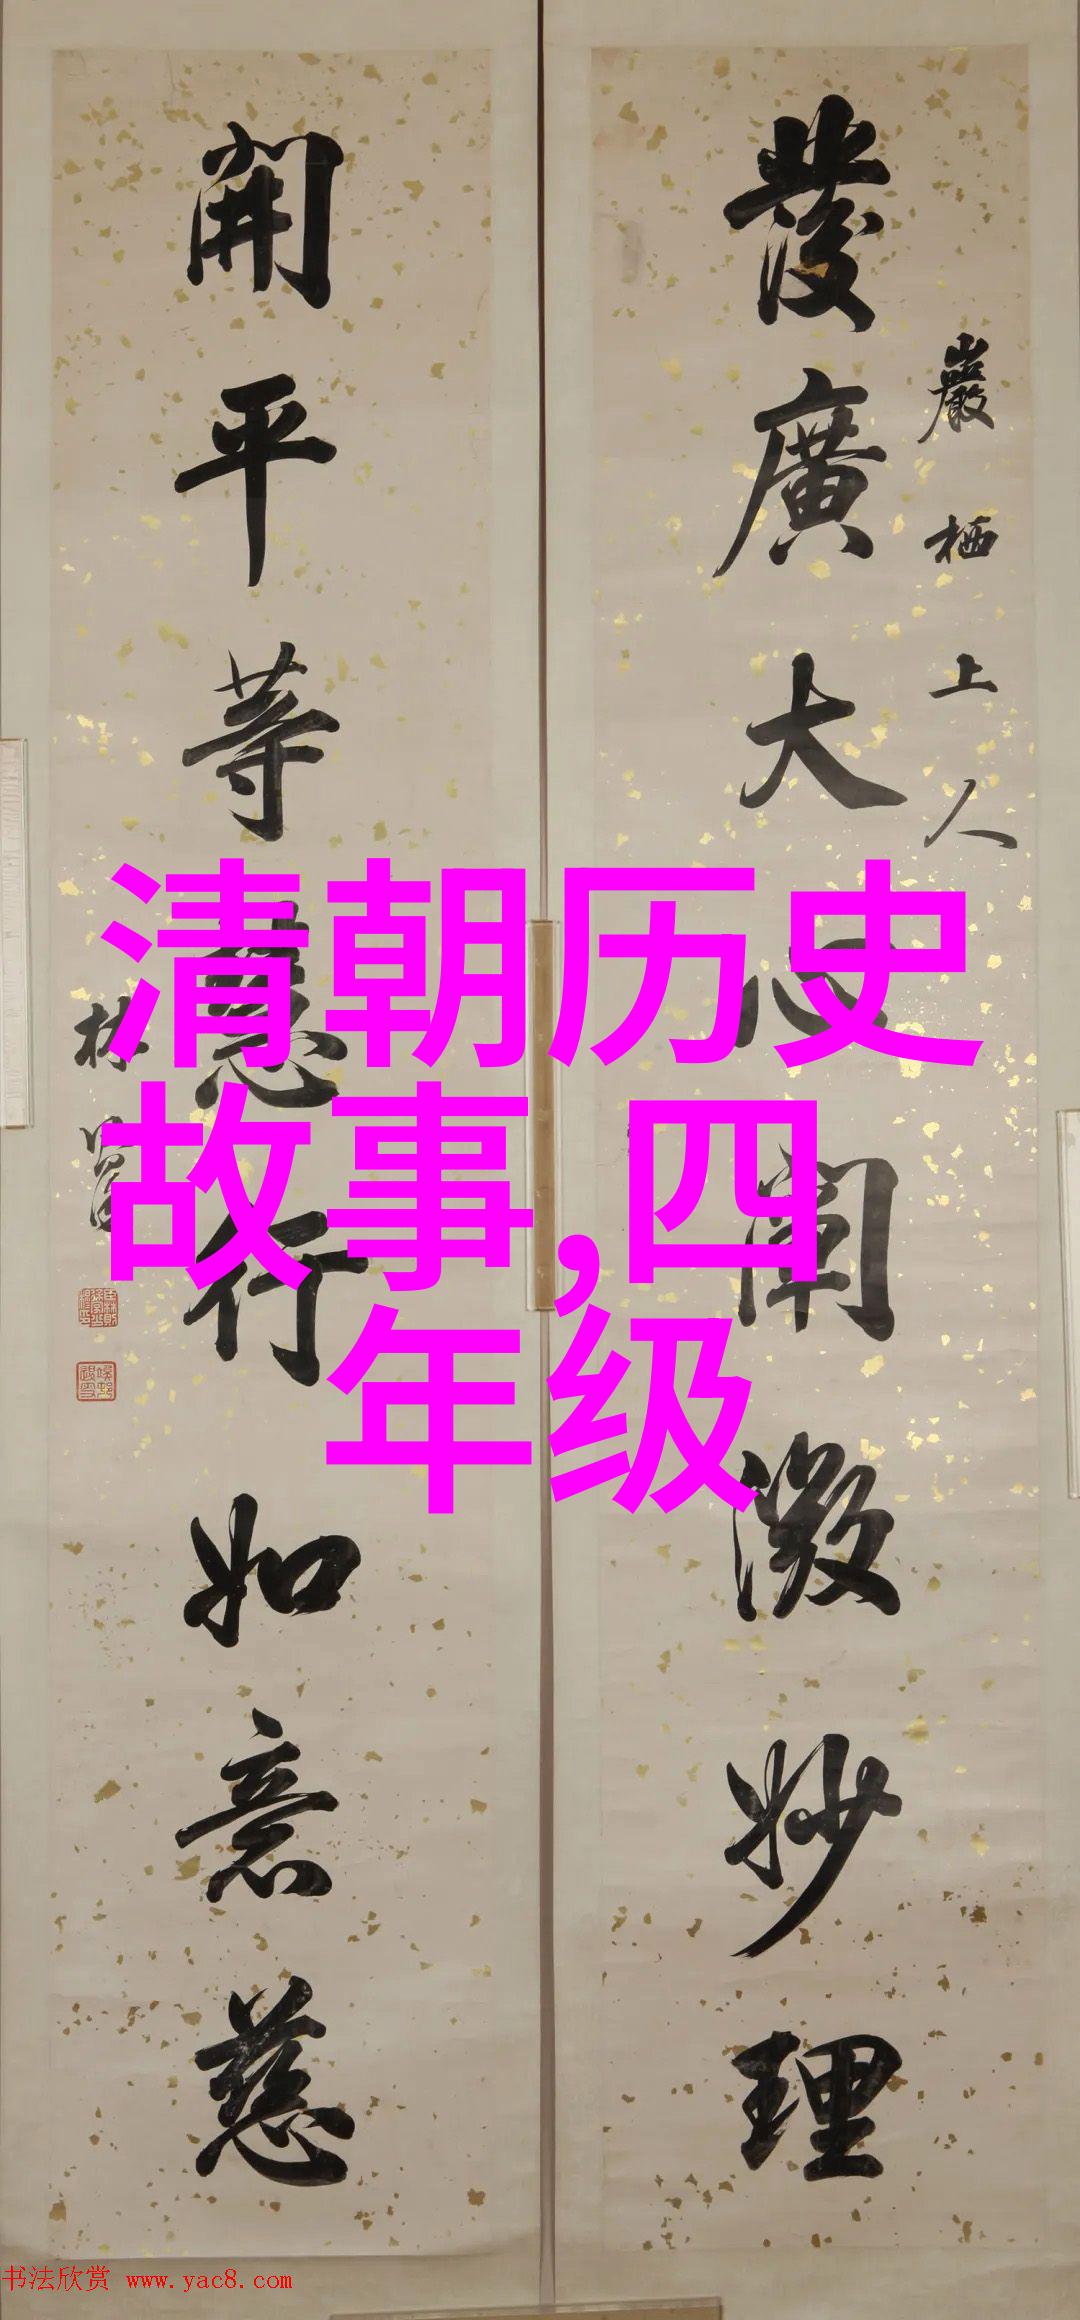 巖栖上人
發廣大心闡微妙理
開平等慧行如意慈
林
清朝历史
故事,四
年级
书法欣赏 www.yac8.com